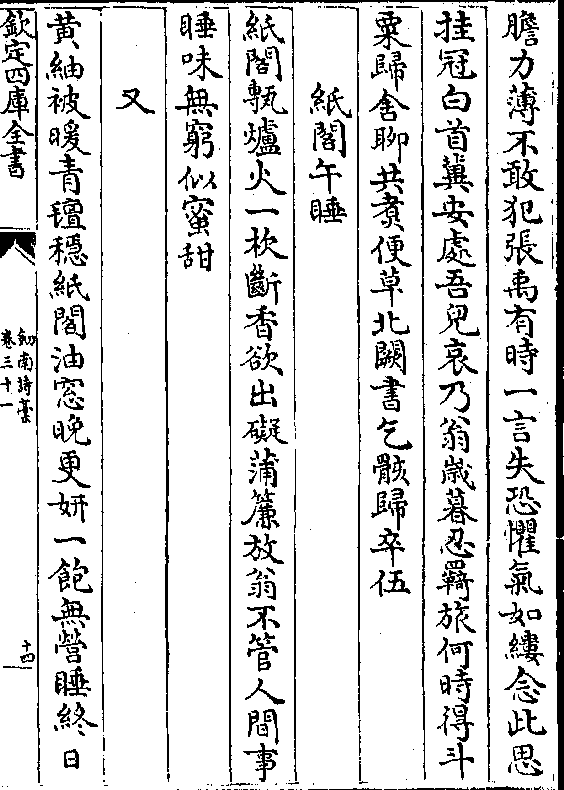 膽力薄不敢犯張禹有時一言失恐懼氣如縷念此思
挂冠白首冀安處吾兒哀乃翁歳暮忍羇旅何時得斗
粟歸舍聊共煑便草北闕書乞骸歸卒伍
紙閣午睡
紙閣甎爐火一杴斷香欲出礙蒲簾放翁不管人間事
睡味無窮似蜜甜
又
黄紬被暖青氊穩紙閤油窓晩更妍一飽無營睡終日
欽定四庫全書
劍南詩槀
卷三十一
十四